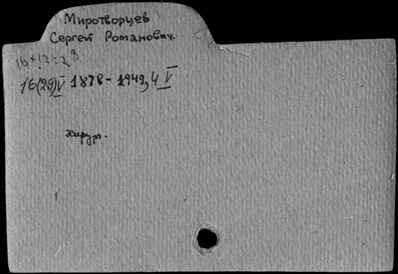 Миротворцев
Сергей Романович.
16+12=28
16(28)V 1878-1949, 4 V
хирург.